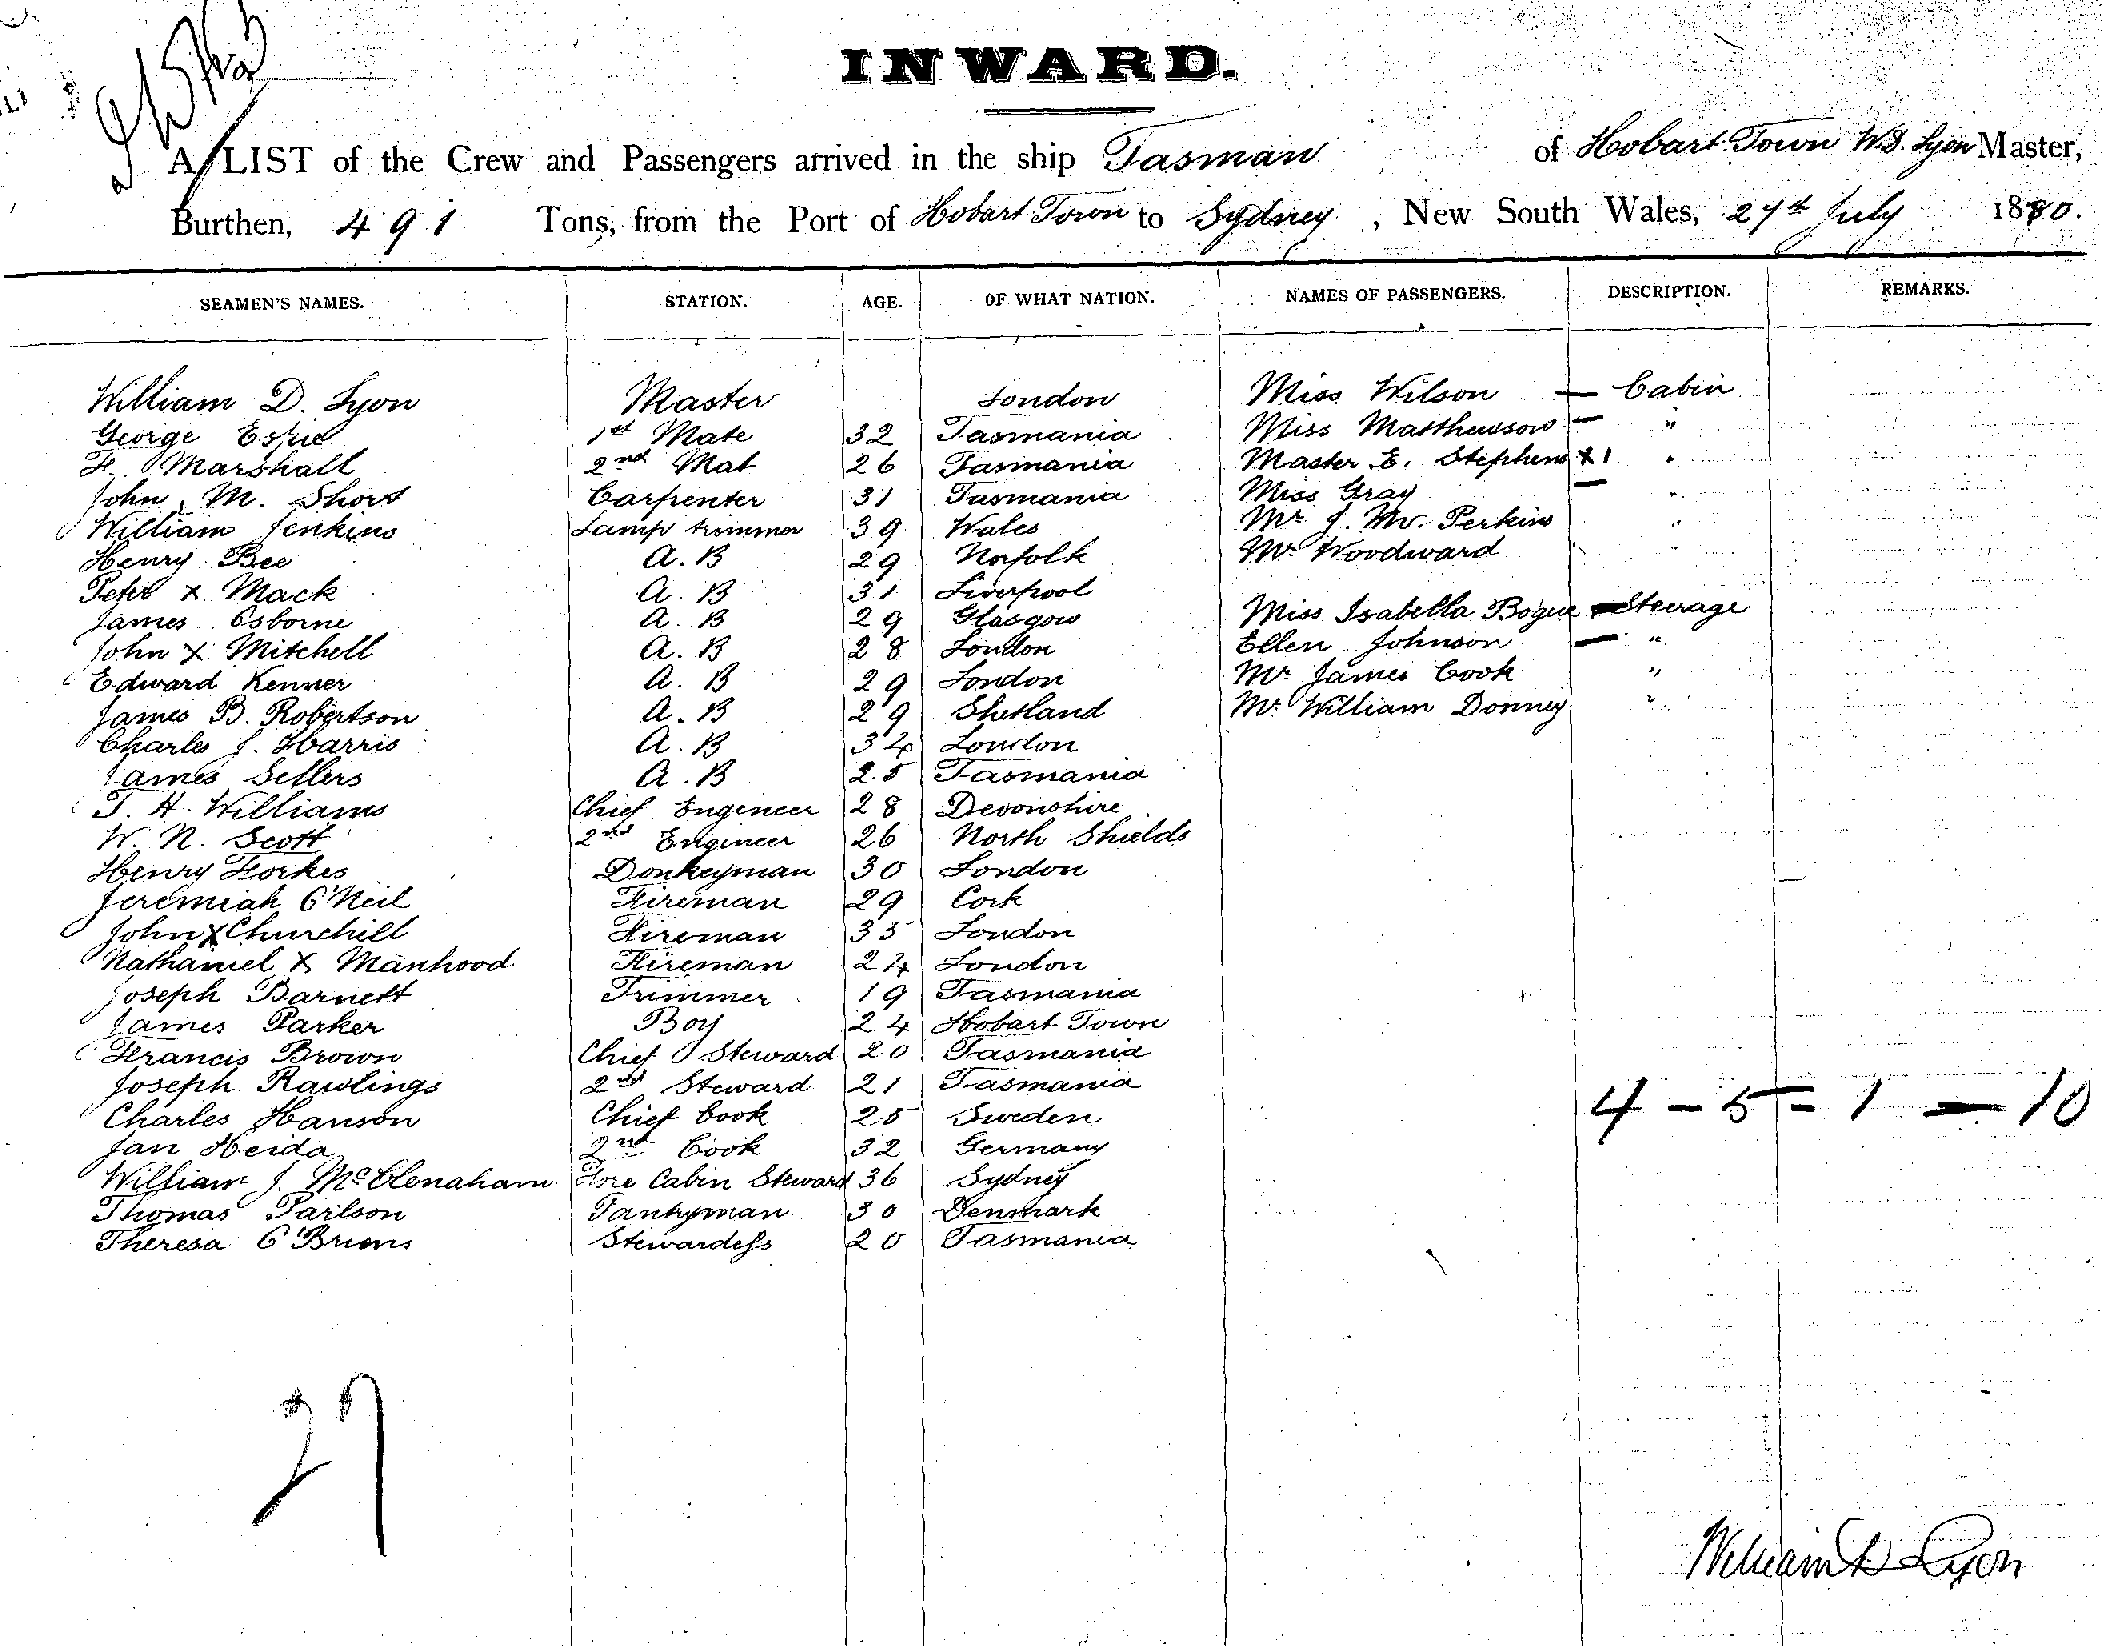 INWARD.
A LIST of the Crew and Passengers arrived in the ship Tasman of Hobart Town W.D. Lyon Master,
Burthen, 491 Tons, from the Port of Hobart Town to Sydney, New South Wales, 27th July 1880.
SEAMEN'S NAMES. STATION. AGE. OF WHAT NATION. NAMES OF PASSENGERS. DESCRIPTION. REMARKS.
William D. Lyon Master London Miss Wilson — Cabin
George Espie 1st Mate 32 Tasmania Miss Matthewson — "
F. Marshall 2nd Mat 26 Tasmania Master E. Stephens x 1 "
John M. Short Carpenter 31 Tasmania Miss Gray — "
William Jenkins Lamp trimmer 39 Wales Mr J. Mc. Perkins "
Henry Bee A.B 29 Norfolk Mr Woodward "
Peter x Mack A.B 31 Liverpool
James Osborne A.B 29 Glasgow Miss Isabella Bogue — Steerage
John x Mitchell A.B 28 London Ellen Johnson — "
Edward Kenner A.B 29 London Mr James Cook "
James B. Robertson A.B 29 Shetland Mr William Donney "
Charles J. Harris A.B 34 London
James Sellers A.B 25 Tasmania
T. H. Williams Chief Engineer 28 Devonshire
W. N. Scott 2nd Engineer 26 North Shields
Henry Forkes Donkeyman 30 London
Jeremiah O'Neil Fireman 29 Cork
John x Churchill Fireman 35 London
Nathaniel x Manhood Fireman 24 London
Joseph Barnett Trimmer 19 Tasmania
James Parker Boy 24 Hobart Town
Francis Brown Chief Steward 20 Tasmania
Joseph Rawlings 2nd Steward 21 Tasmania
Charles Hanson Chief Cook 25 Sweden 4 - 5 = 1 — 10
Jan Heida 2nd Cook 32 Germany
William J. McClenaham Fore Cabin Steward 36 Sydney
Thomas Parlson Pantryman 30 Denmark
Theresa O'Briens Stewardess 20 Tasmania
27
William D Lyon